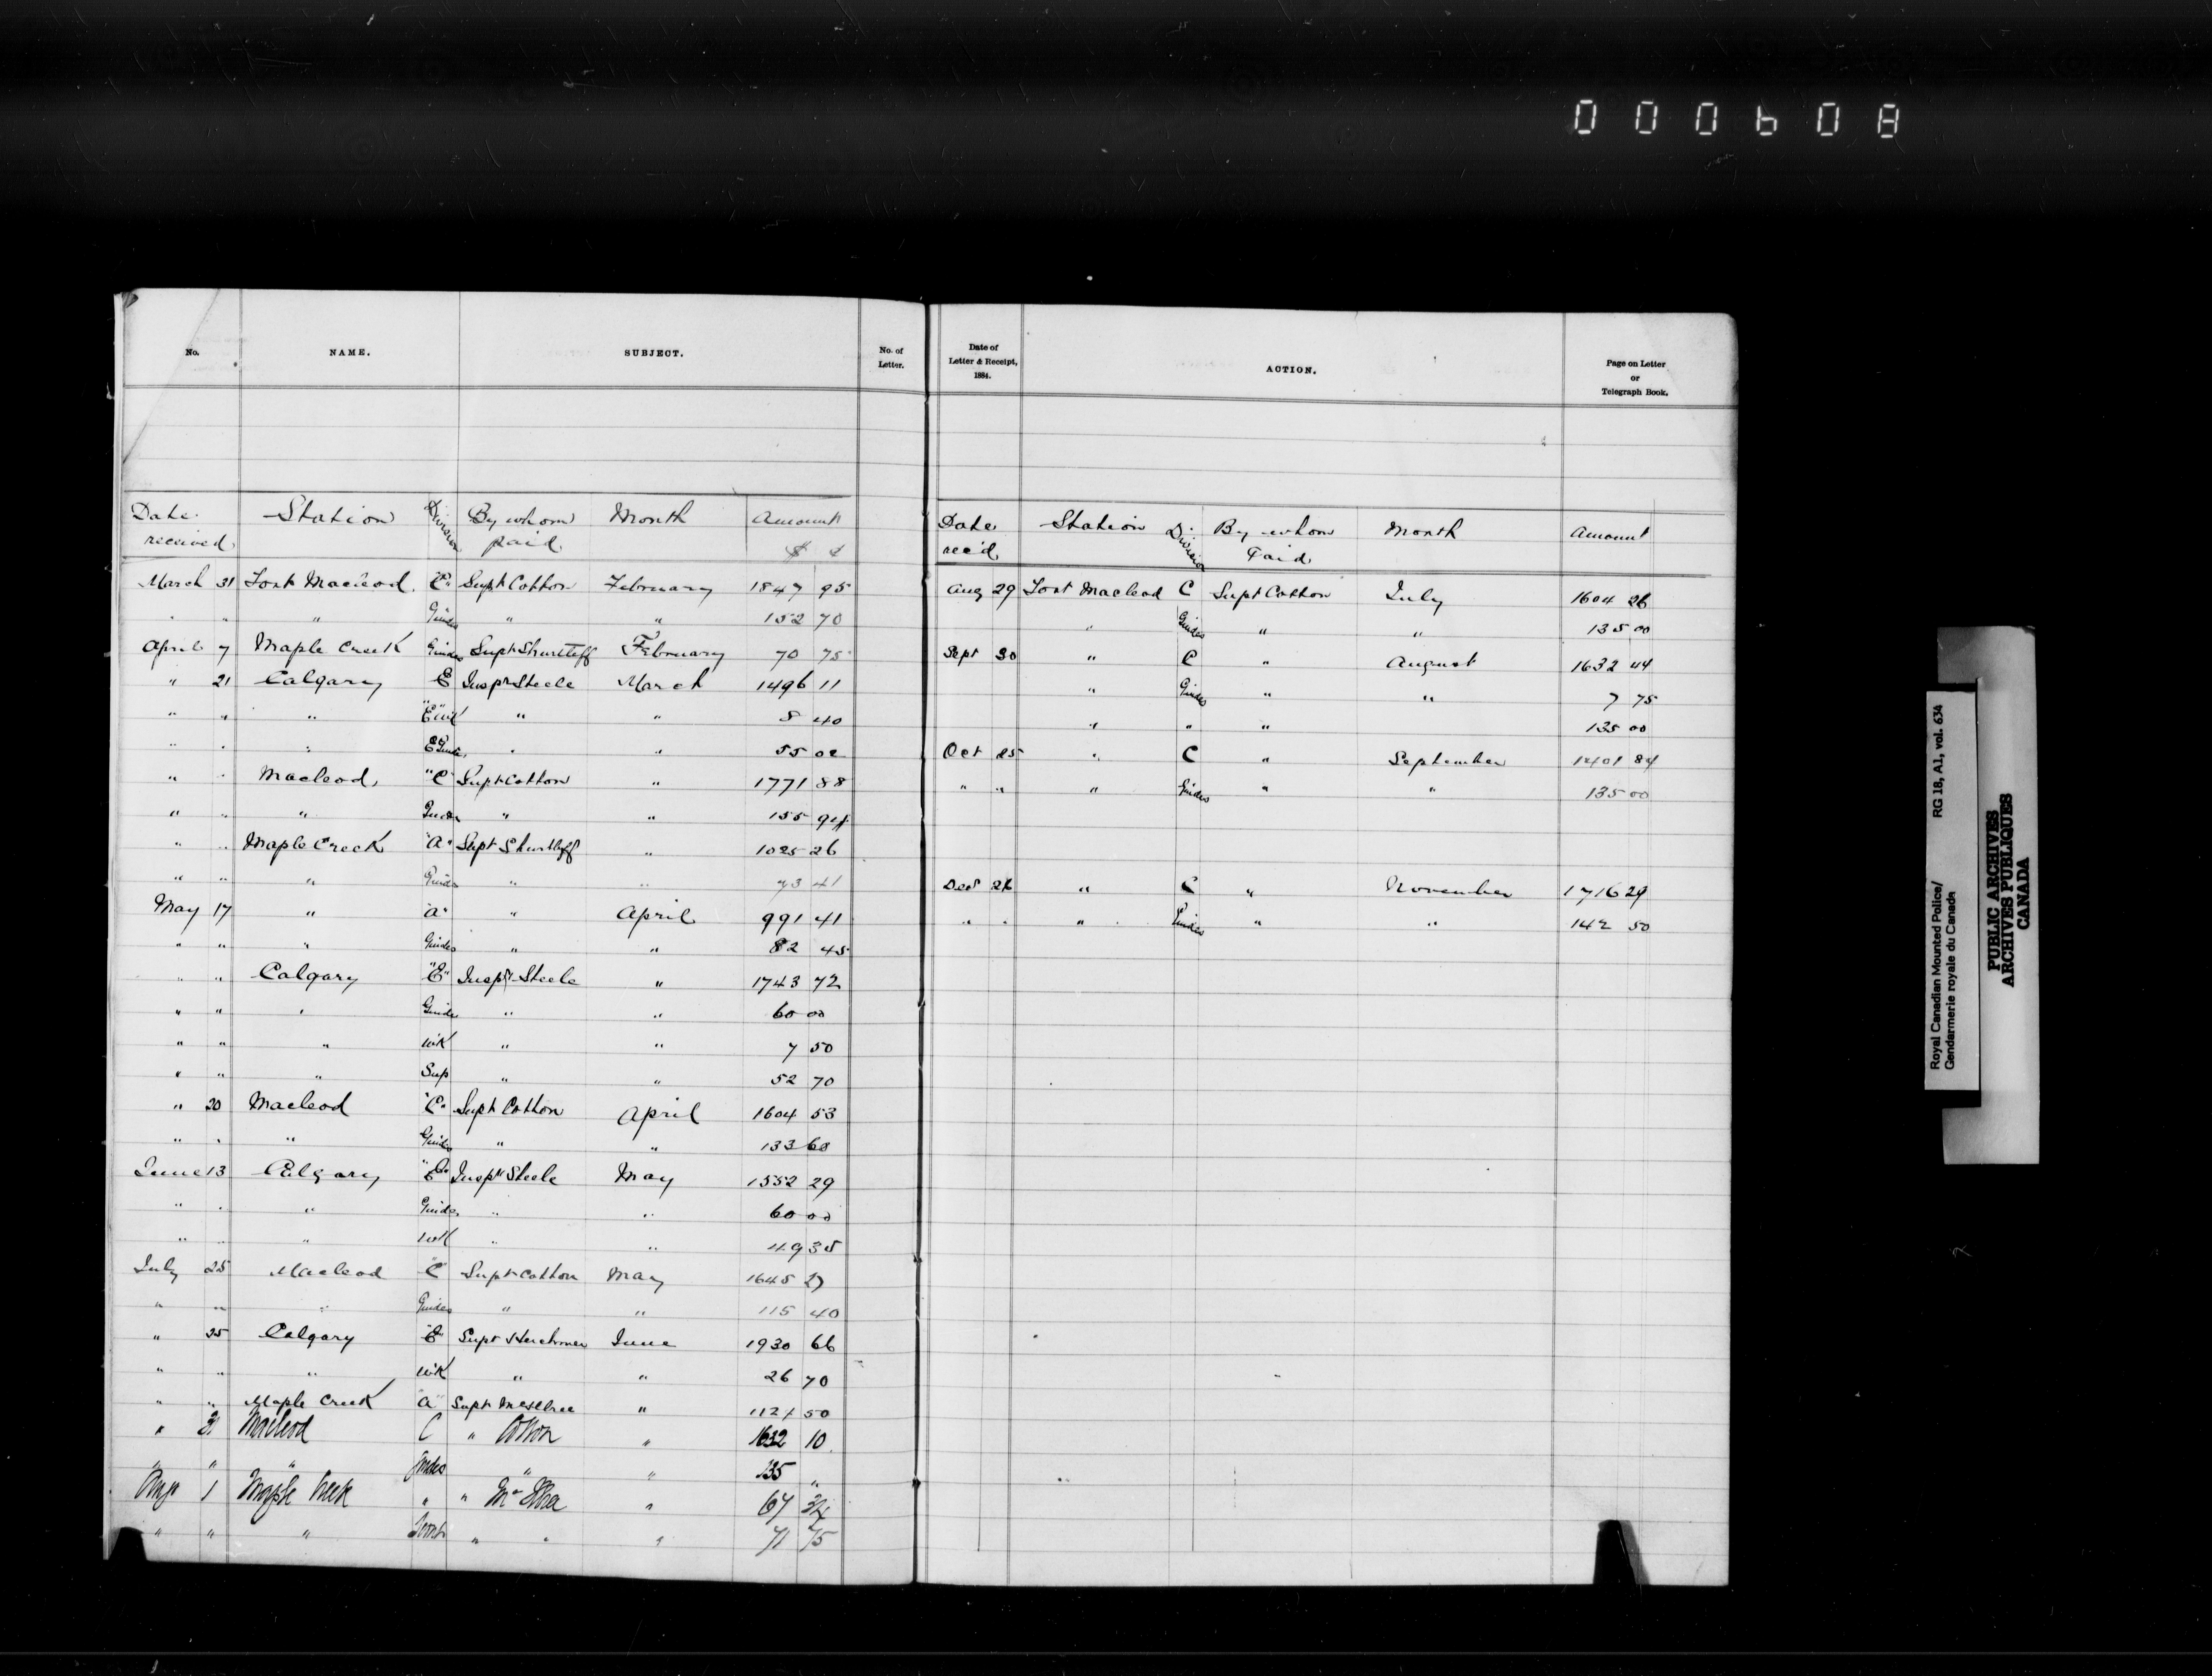 000608
No. NAME. SUBJECT. No. of Letter.
Date received Station Division By whom paid Month Amount $ ¢
March 31 Fort Macleod. "C" Supt Cotton February 1847 95
" " " Guides " " 152 70
April 7 Maple Creek Guides Supt Shurtleff February 70 75
" 21 Calgary E Inspr Steele March 1496 11
" " " "E" " " 8 40
" " " E " " 55 00
" " Macleod, "C" Supt Cotton " 1771 88
" " " " " 155 94
" " Maple Creek "A" Supt Shurtleff " 1025 26
" " " Guides " " 73 41
May 17 " "A" " April 991 41
" " " Guides " " 82 45
" " Calgary "E" Inspr Steele " 1743 72
" " " Guides " " 60 00
" " " " " 7 50
" " " Sup " " 52 70
" 20 Macleod "C" Supt Cotton April 1604 53
" " " Guides " " 133 60
June 13 Calgary "E" Inspr Steele May 1552 29
" " " Guides " " 60 00
" " " " " 49 35
July 25 Macleod "C" Supt Cotton May 1645 27
" " " Guides " " 115 40
" 25 Calgary "E" Supt Herchmer June 1930 66
" " " " " 26 70
" " Maple Creek "A" Supt " 50
" 31 Macleod C " Cotton " 1632 10
" " " Guides " " 135 "
Aug 1 Maple Creek " " " 67 34
" " " " " " 71 75
Date of Letter & Receipt, 1884. ACTION. Page on Letter or Telegraph Book.
Date rec'd Station Division By whom Paid Month Amount
Aug 29 Fort Macleod C Supt Cotton July 1604 26
" Guides " " 135 00
Sept 30 " C " August 1632 44
" Guides " " 7 75
" " " 135 00
Oct 25 " C " September 1401 84
" " " Guides " " 135 00
Dec " C " November 1716 29
" " " Guides " " 142 50
Royal Canadian Mounted Police/ RG 18, A1, vol. 634
Gendarmerie royale du Canada
PUBLIC ARCHIVES
ARCHIVES PUBLIQUES
CANADA